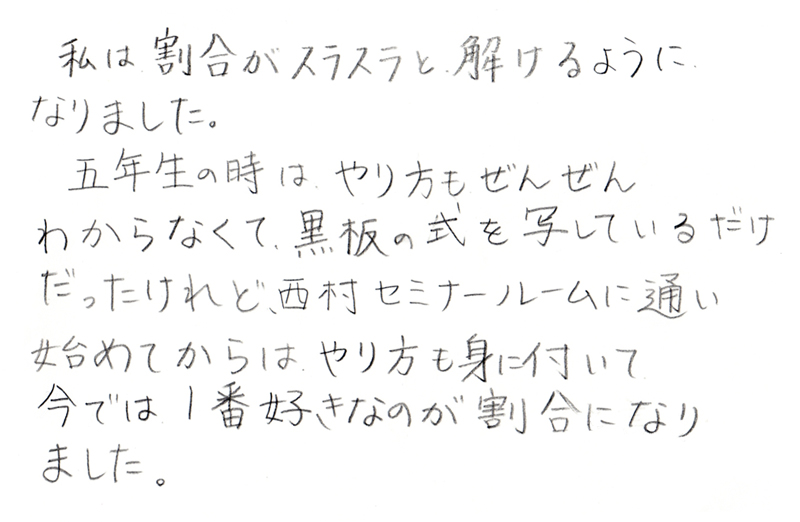 私は割合がスラスラと解けるように
なりました。
五年生の時は、やり方もぜんぜん
わからなくて、黒板の式を写しているだけ
だったけれど、西村セミナールームに通い
始めてからは、やり方も身に付いて
今では1番好きなのが割合になり
ました。